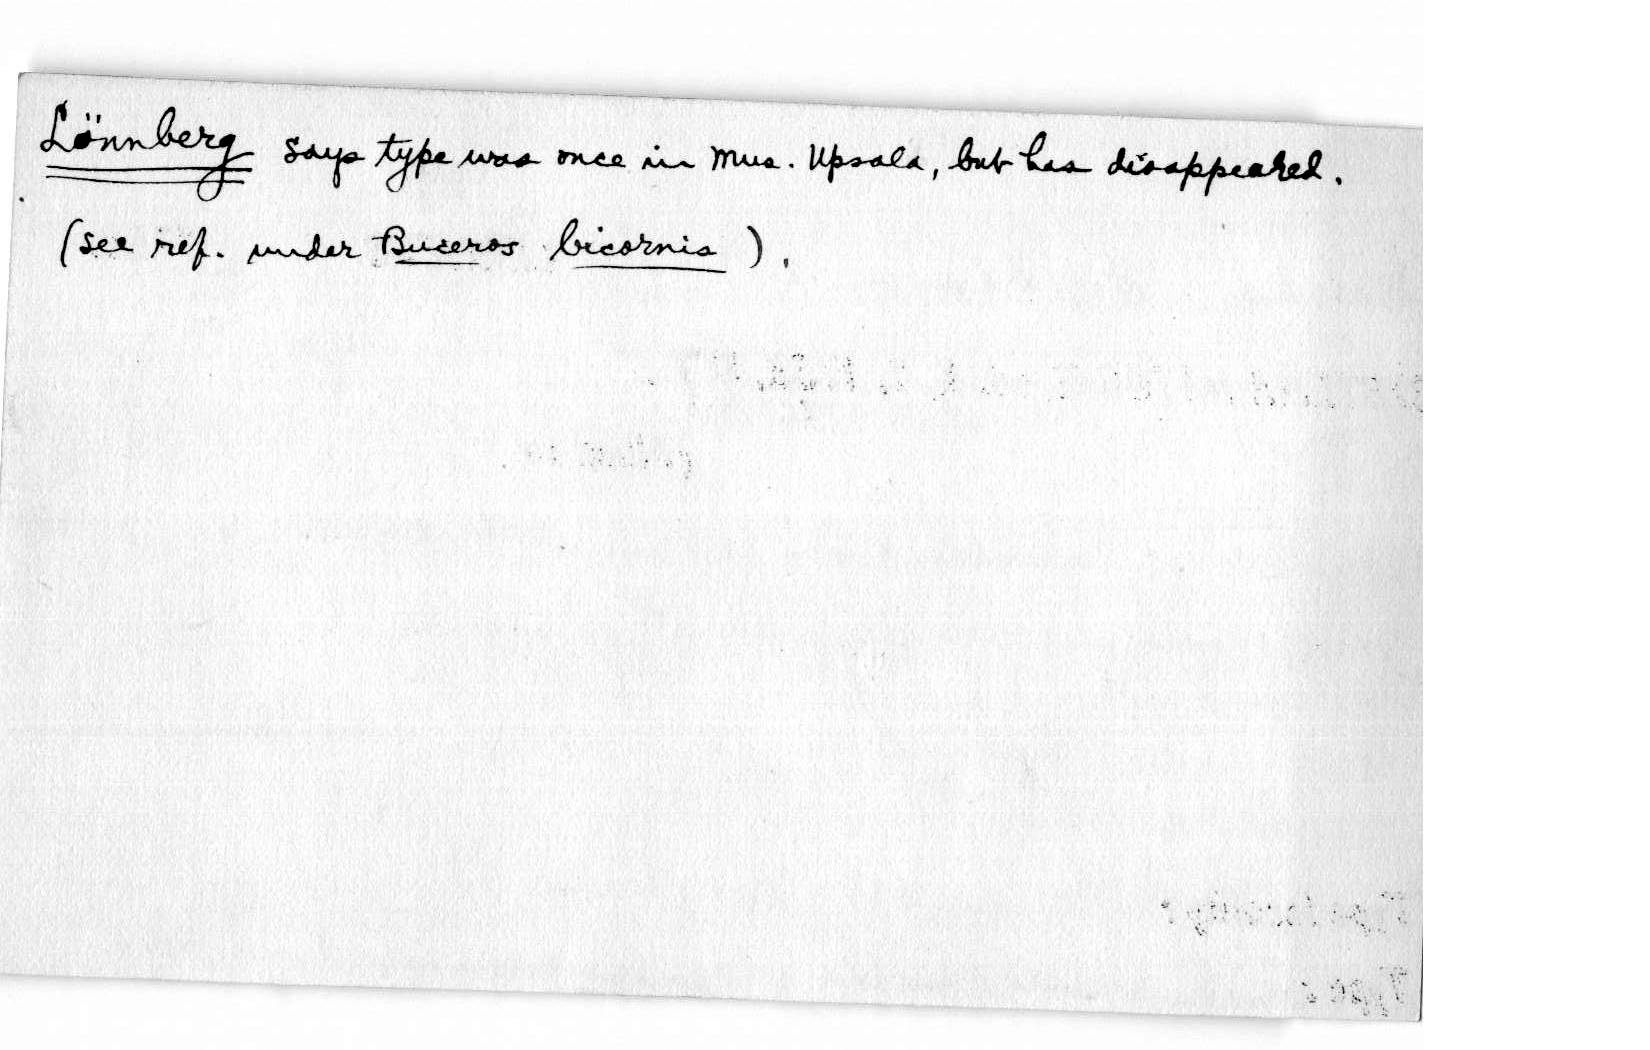 Lönnberg says type was once in Mus. Upsala, but has disappeared.
(see ref. under Buceros bicornis).